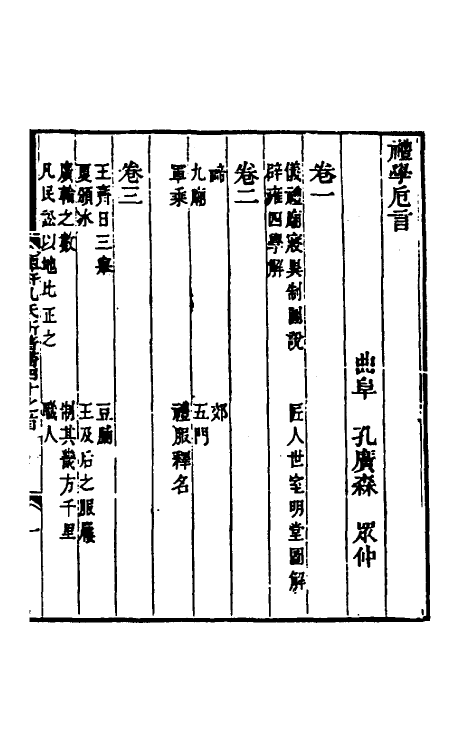 禮學卮言
曲阜　孔廣森　眾仲
卷一
儀禮廟寢異制圖說　匠人世室明堂圖解
辟雍四學解
卷二
禘　郊
九廟　五門
軍乘　禮服釋名
卷三
王齊日三舉　豆脯
夏頒冰　王及后之服屨
廣輪之數　制其畿方千里
凡民訟以地比正之　職人